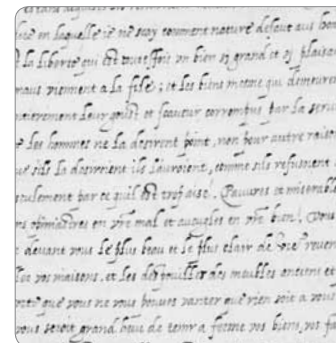 en laquelle ie ne scay comment nature defaut aus
la liberte qui est toutesfois un bien si grand et si plaisa
maus viennent a la file ; et les biens mesme qui demeure
entierement leur goust et scaueur corrompus par la serui
les hommes ne la desirent point, non pour autre raiso
sils la desiroient ils l'auroient, comme sils refusoient
seulement par ce quil est trop aise. Pauures et miserable
opiniastres en vre mal et aueugles en vre bien. vous
devant vous le plus beau et le plus clair de vre reuen
vos maisons, et les despouiller des meubles anciens et
que vous ne vous pouues vanter que rien soit a vous
vous seroit grand heur de tenir a ferme vos biens, vos fa